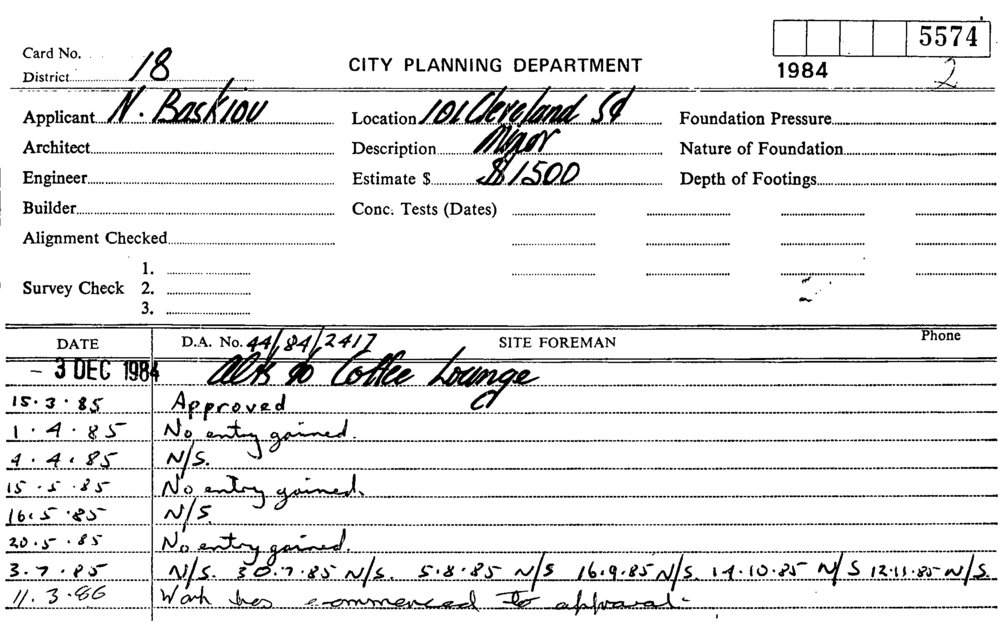 5574
Card No.
District 18
CITY PLANNING DEPARTMENT
1984 2
Applicant N. Baskiou Location 101 Cleveland St Foundation Pressure
Architect Description Major Nature of Foundation
Engineer Estimate $ $1500 Depth of Footings
Builder Conc. Tests (Dates)
Alignment Checked
1.
Survey Check 2.
3.
DATE D.A. No. 44/84/2417 SITE FOREMAN Phone
- 3 DEC 1984 Alts to Coffee Lounge
15.3.85 Approved
1.4.85 No entry gained.
4.4.85 N/S.
15.5.85 No entry gained.
16.5.85 N/S
20.5.85 No entry gained.
3.7.85 N/S. 30.7.85 N/S. 5.8.85 N/S 16.9.85 N/S. 14.10.85 N/S 12.11.85 N/S.
11.3.86 Work has commenced to approval.